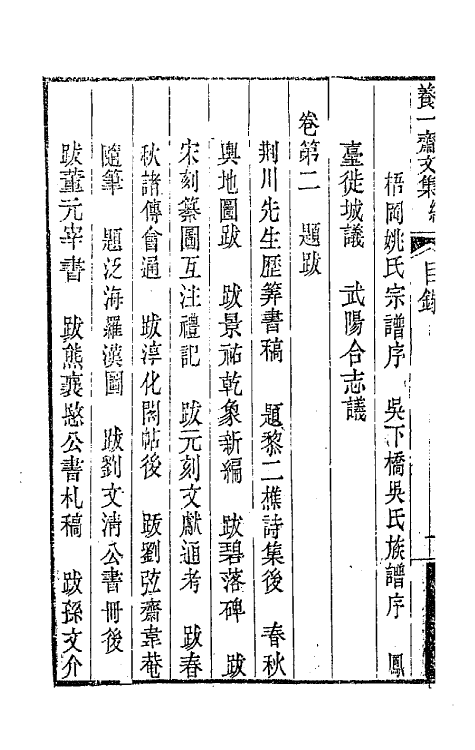 養一齋文集續 目錄 一
梧岡姚氏宗譜序 吳下橋吳氏族譜序 鳳
臺徙城議 武陽合志議
卷第二 題跋
荆川先生歷筭書稿 題黎二樵詩集後 春秋
輿地圖跋 跋景祐乾象新編 跋碧落碑 跋
宋刻纂圖互注禮記 跋元刻文獻通考 跋春
秋諸傳會通 跋淳化閣帖後 跋劉弦齋韋菴
隨筆 題泛海羅漢圖 跋劉文清公書冊後
跋董元宰書 跋熊襄愍公書札稿 跋孫文介